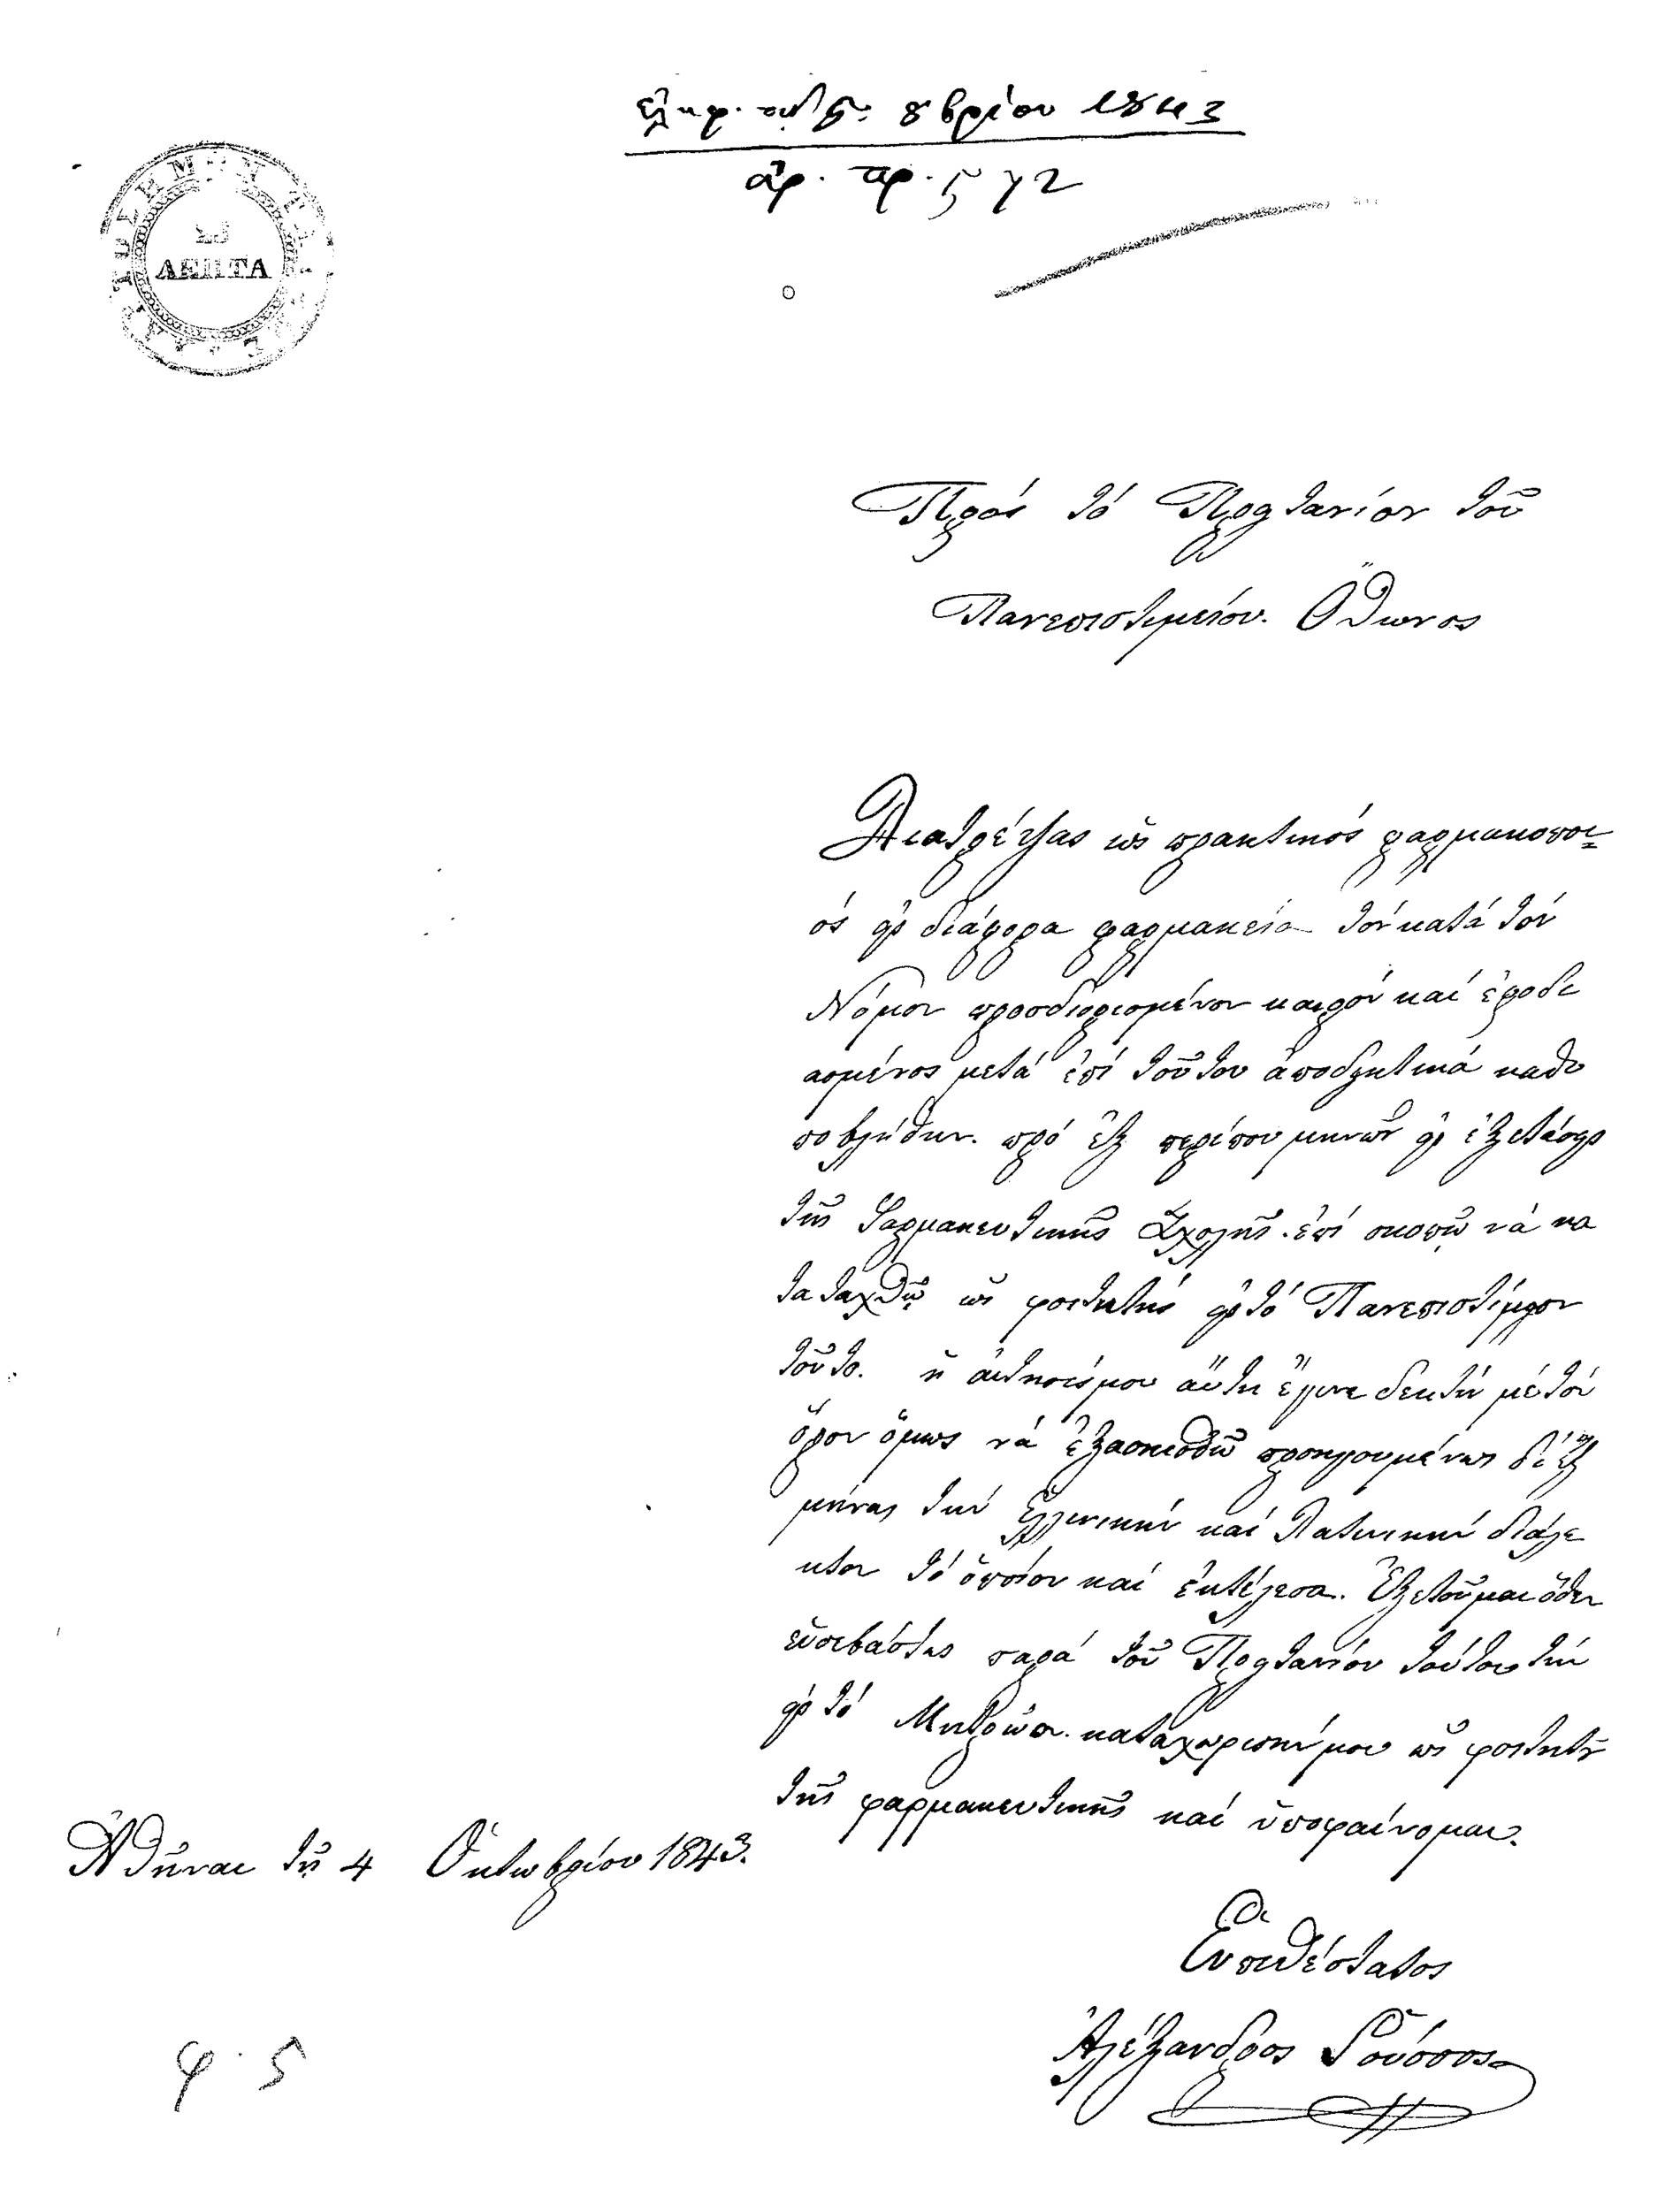 ἀρ. πρ. 572
ΛΕΠΤΑ
Πρός τό Πρυτανίον τοῦ
Πανεπιστιμείου. Ὄθωνος
Διατρέψας ὡς πρακτικός φαρμακοποι=
ός εἰς διάφορα φαρμακεία τόν κατά τόν
Νόμον προσδιορισμένον καιρόν καί ἐφοδι
ασμένος μετά ἐπί τούτου ἀποδεικτικά καθυ
ποβλήθην. πρό ἕξ περίπου μηνῶν εἰς ἐξετάσεις
τῆς Φαρμακευτικῆς Σχολῆς. ἐπί σκοπῷ νά κα
ταταχθῶ ὡς φοιτητής εἰς τό Πανεπιστίμειον
τοῦτο. ἡ αἴτησίς μου αὕτη ἔγινε δεκτή μέ τόν
ὅρον ὅμως νά ἐξασκισθῶ προηγουμένως δι' ἕξ
μήνας τήν Ἑλληνικήν καί Λατινικήν διάλε
κτον τό ὁποῖον καί ἐκτέλεσα. Ἐξετοῦμαι ὅθεν
εὐσεβάστως παρά τοῦ Πρυτανίου τούτου τήν
εἰς τό Μητρῶον. καταχώρισίν μου ὡς φοιτητῆ
τῆς φαρμακευτικῆς καί ὑποφαίνομαι.
Ἀθῆναι τῇ 4 Ὀκτωβρίου 1843.
Εὐπειθέστατος
Ἀλέξανδρος Ῥούσσος
φ. 5